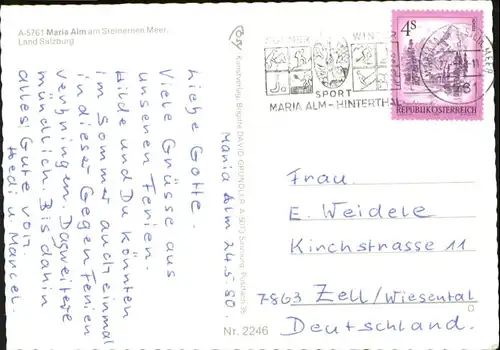 A-5761 Maria Alm am Steinernen Meer,
Land Salzburg
Maria Alm 24.5.80.
Liebe Gotte.
Viele Grüsse aus
unseren Ferien.
Hilde und Du könnten
im Sommer auch einmal
in dieser Gegen Ferien
verbringen. Das weitere
mündlich. Bis dahin
alles Gute von
Hedi u. Marcel.
Nr. 2246
WIN
SPORT
MARIA ALM - HINTERTHAL
4S
REPUBLIK ÖSTERREICH
Frau.
E. Weidele
Kirchstrasse 11
7863 Zell/Wiesental
Deutschland.